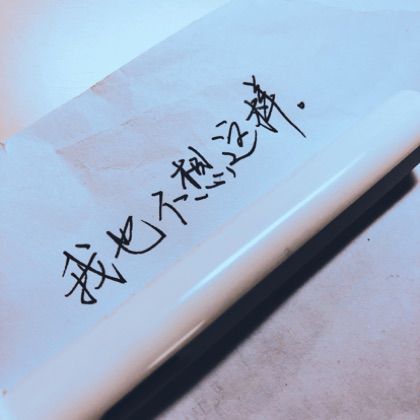 我也不想这样.